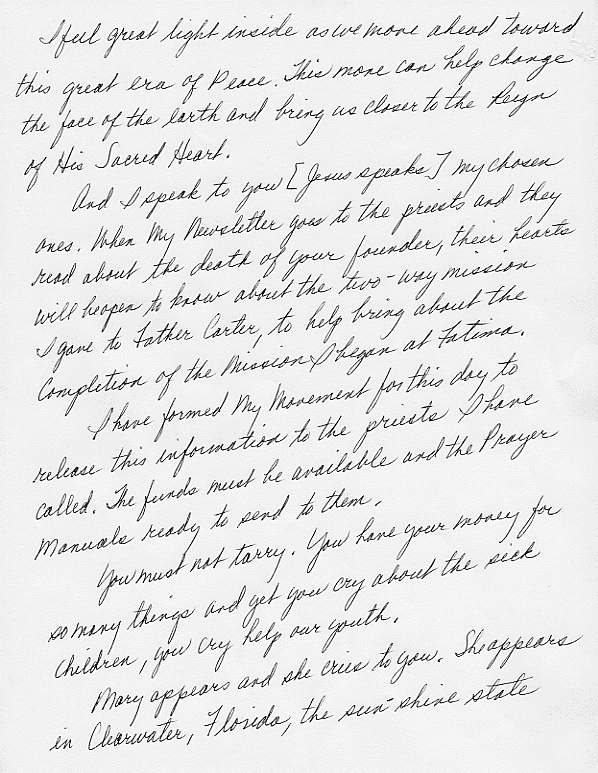 I feel great light inside as we move ahead toward
this great era of Peace. This move can help change
the face of the earth and bring us closer to the Reign
of His Sacred Heart.
And I speak to you [Jesus speaks] my chosen
ones. When My Newsletter goes to the priests and they
read about the death of your founder, their hearts
will be open to know about the two-way mission
I gave to Father Carter, to help bring about the
Completion of the Mission I began at Fatima.
I have formed My Movement for this day to
release this information to the priests I have
called. The funds must be available and the Prayer
Manuals ready to send to them.
You must not tarry. You have your money for
so many things and yet you cry about the sick
children, you cry help our youth.
Mary appears and she cries to you. She appears
in Clearwater, Florida, the sun-shine state